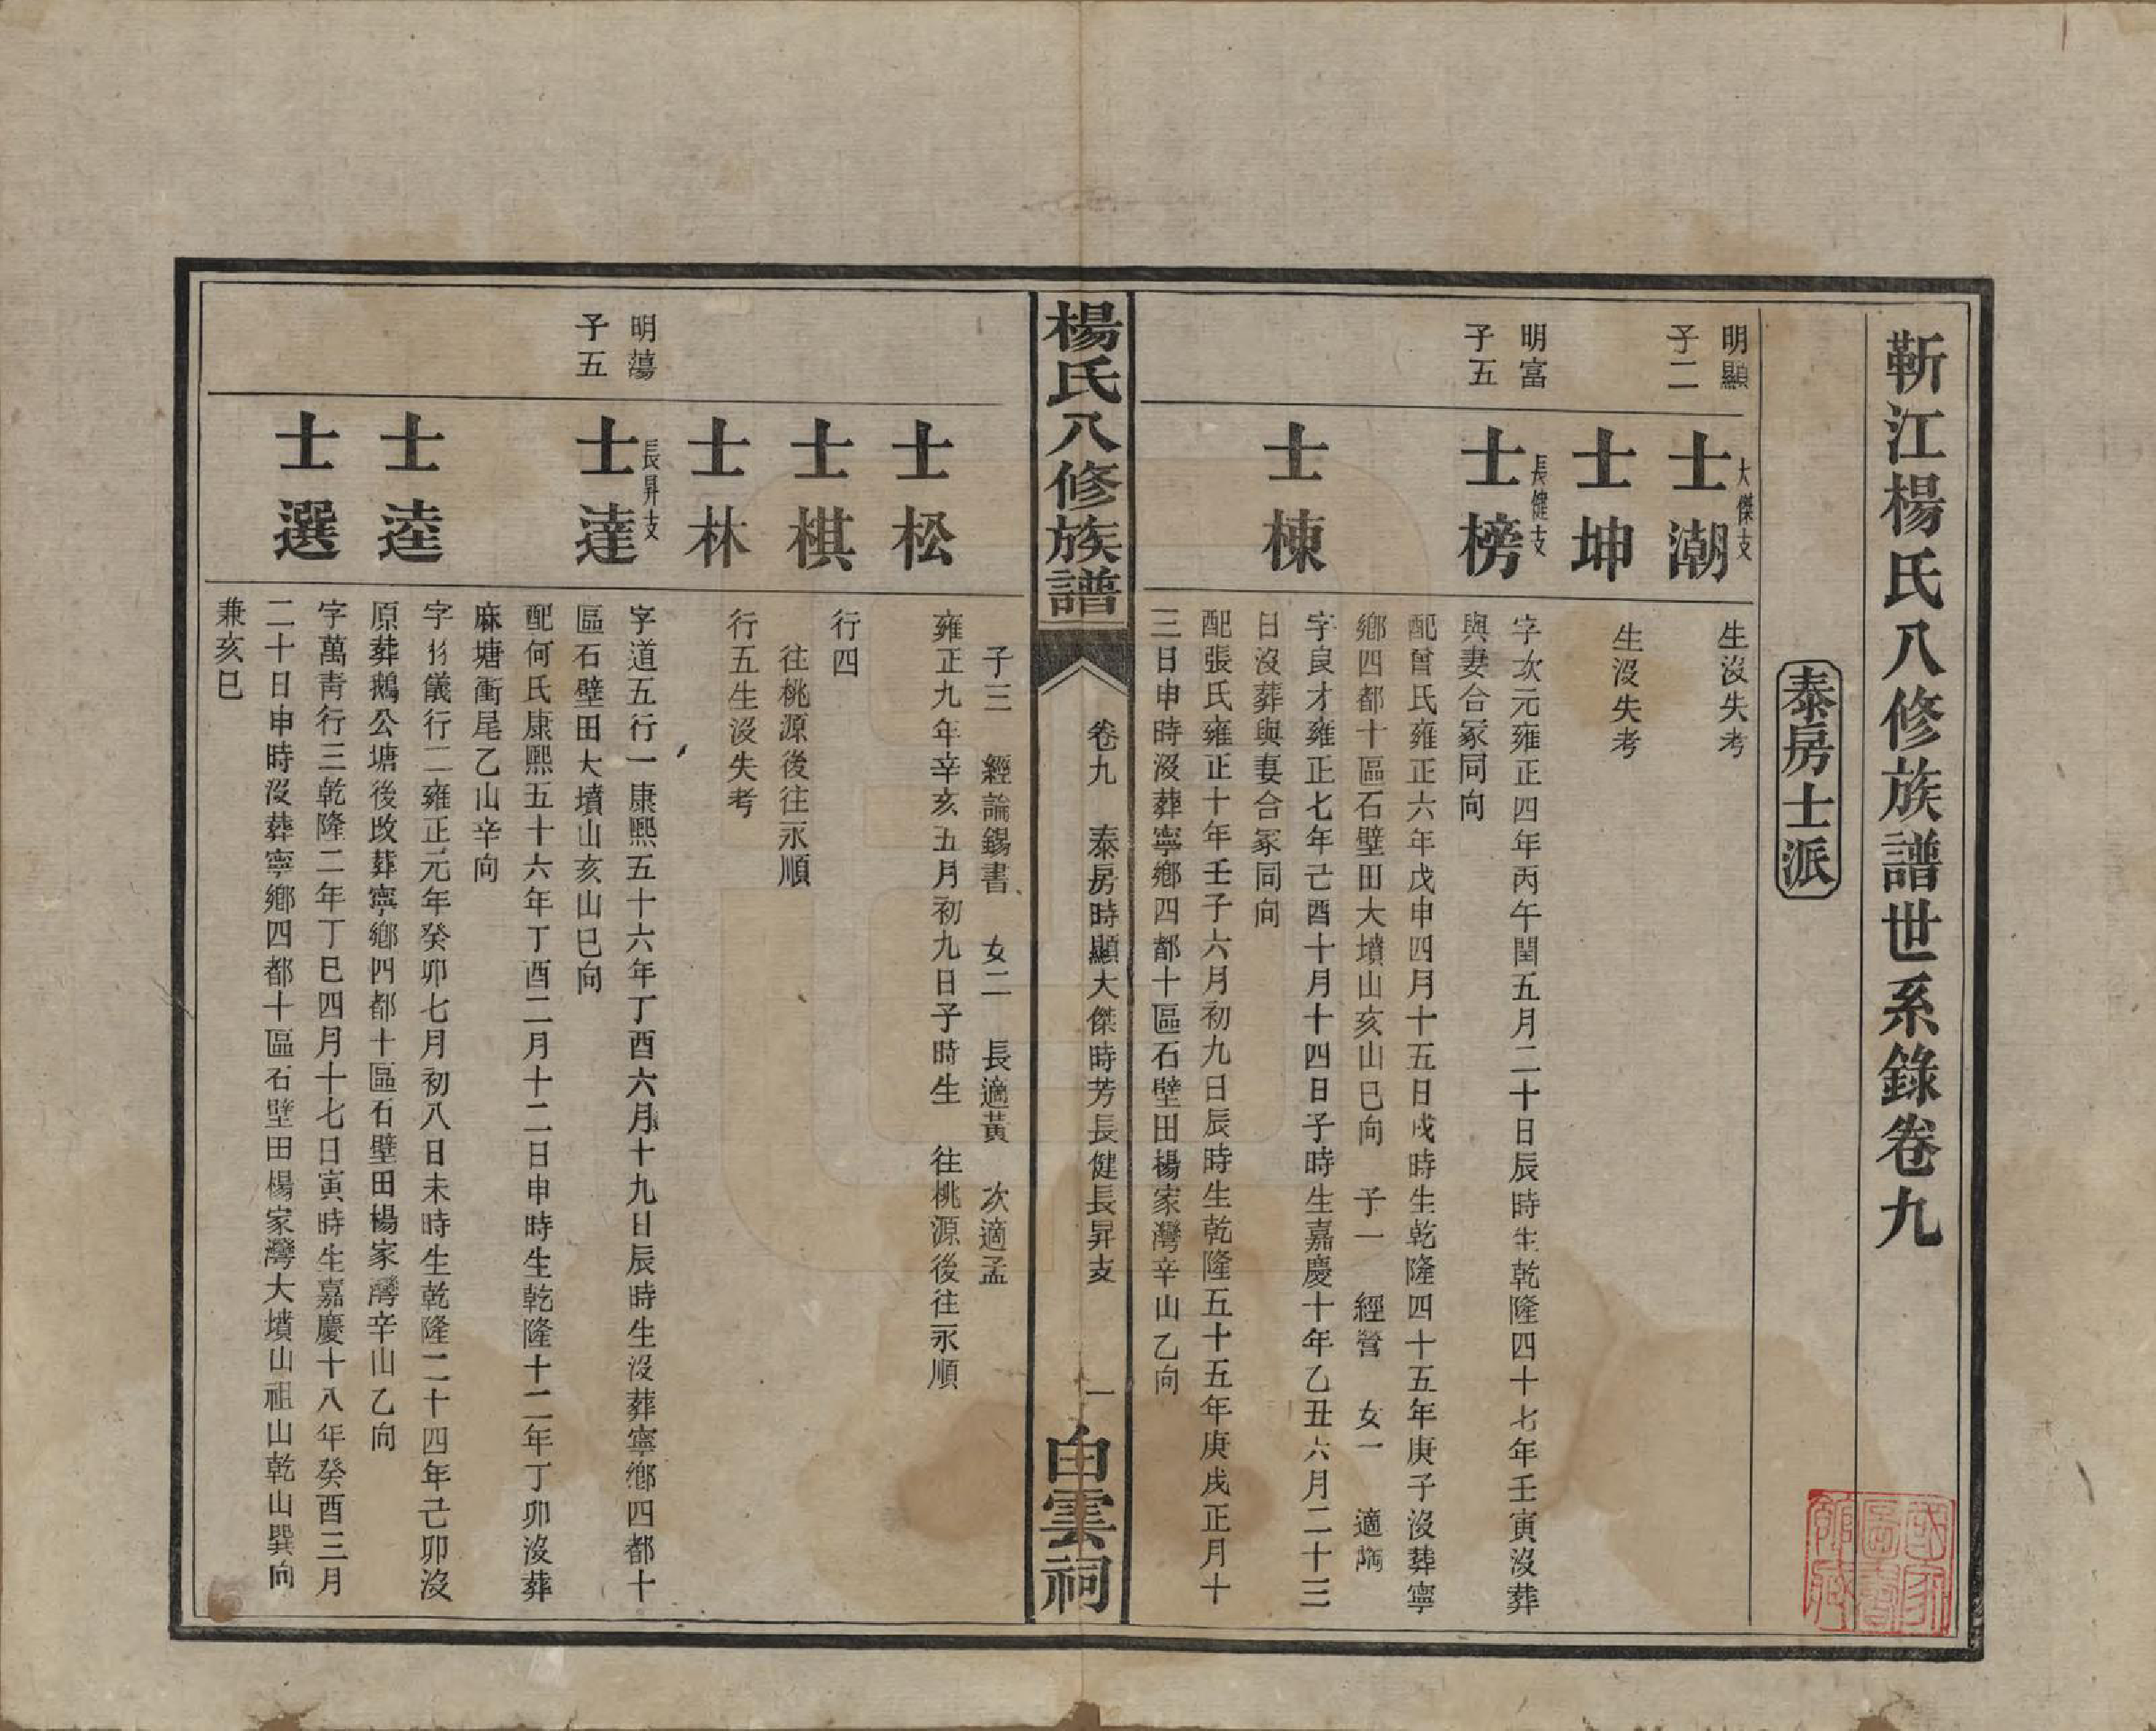 靳江楊氏八修族譜世系錄卷九
泰房士派
明顯
子二
大傑支
士潮
生沒失考
士坤
生沒失考
明富
子五
長健支
士榜
字次元雍正四年丙午閏五月二十日辰時生乾隆四十七年壬寅沒葬
與妻合冢同向
配曾氏雍正六年戊申四月十五日戌時生乾隆四十五年庚子沒葬寧
鄉四都十區石壁田大墳山亥山巳向 子一 經營 女一 適陶
士棟
字良才雍正七年己酉十月十四日子時生嘉慶十年乙丑六月二十三
日沒葬與妻合冢同向
配張氏雍正十年壬子六月初九日辰時生乾隆五十五年庚戌正月十
三日申時沒葬寧鄉四都十區石壁田楊家灣辛山乙向
楊氏八修族譜
卷九 泰房時顯大傑時芳長健長昇支
一
白雲祠
子三 經論錫書 女二 長適黃 次適孟
士松
雍正九年辛亥五月初九日子時生 往桃源後往永順
士棋
行四
往桃源後往永順
士林
行五生沒失考
明蕩
子五
長昇支
士達
字道五行一康熙五十六年丁酉六月十九日辰時生沒葬寧鄉四都十
區石壁田大墳山亥山巳向
配何氏康熙五十六年丁酉二月十二日申時生乾隆十二年丁卯沒葬
麻塘衝尾乙山辛向
士逵
字儀行二雍正元年癸卯七月初八日未時生乾隆二十四年己卯沒
原葬鵝公塘後改葬寧鄉四都十區石壁田楊家灣辛山乙向
士選
字萬青行三乾隆二年丁巳四月十七日寅時生嘉慶十八年癸酉三月
二十日申時沒葬寧鄉四都十區石壁田楊家灣大墳山祖山乾山巽向
兼亥巳
國家
圖書
館藏